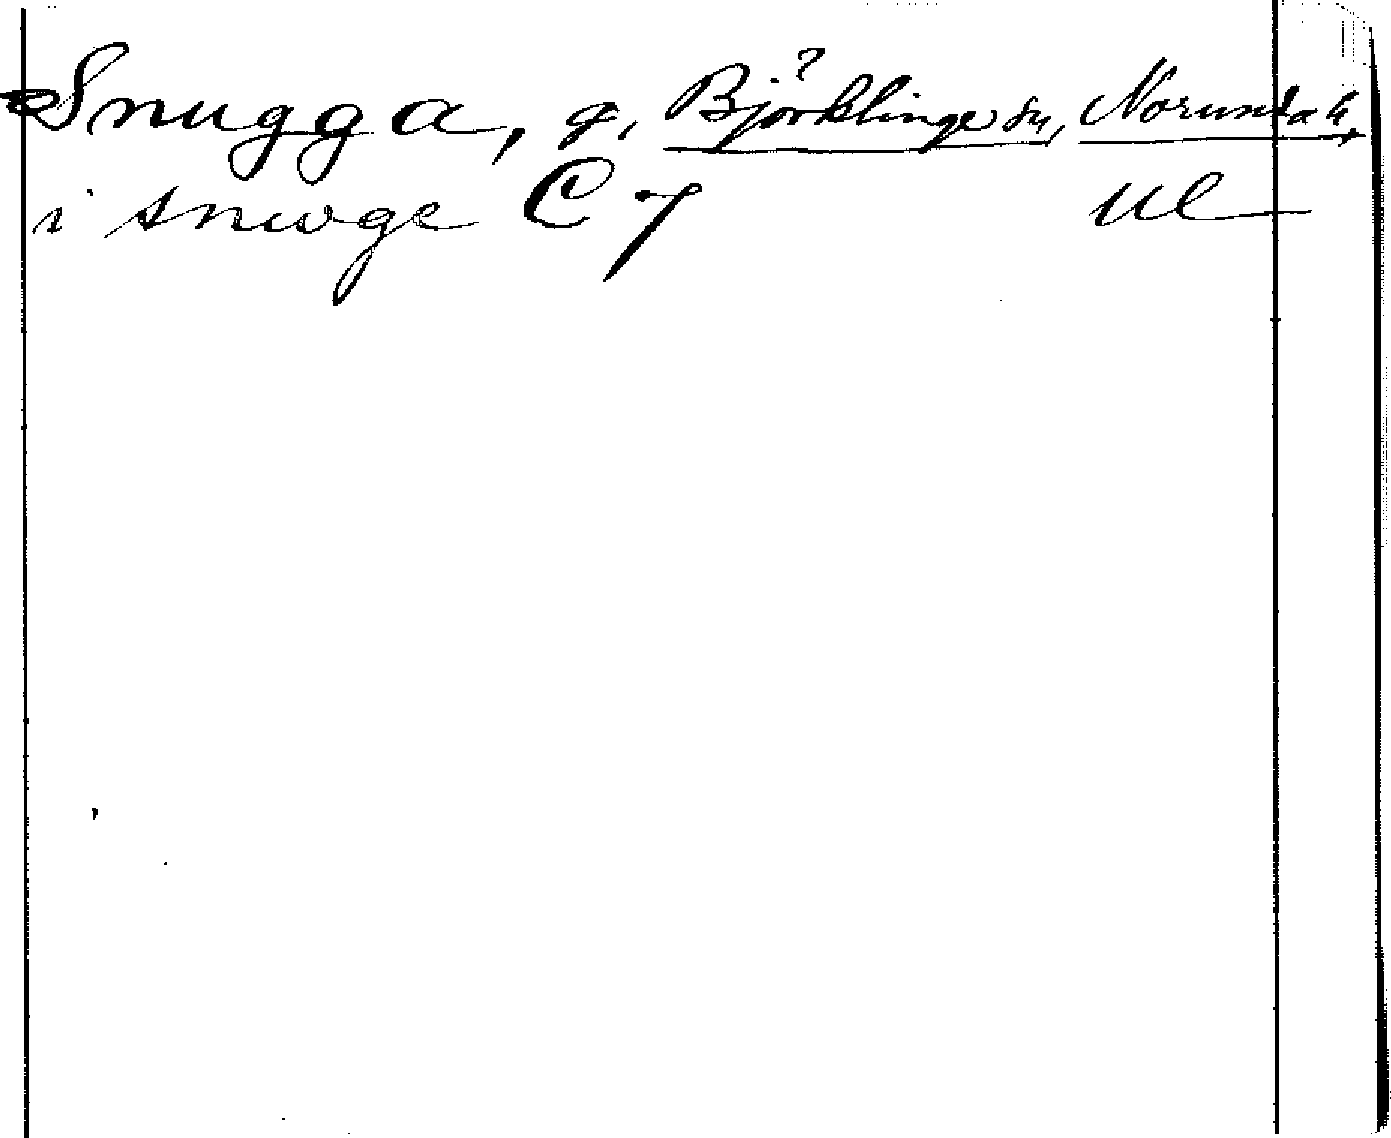 Snugga, g, Björklinge sn, Norunda h,
i snwge C 7 Ul